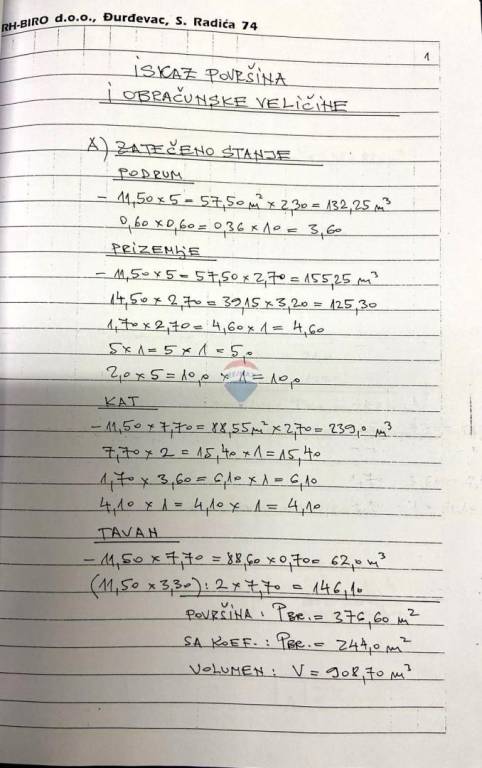 RH-BIRO d.o.o., Đurđevac, S. Radića 74
1
ISKAZ POVRŠINA
I OBRAČUNSKE VELIČINE
A) ZATEČENO STANJE
PODRUM
- 11,50 x 5 = 57,50 m² x 2,30 = 132,25 m³
0,60 x 0,60 = 0,36 x 10 = 3,60
PRIZEMLJE
- 11,50 x 5 = 57,50 x 2,70 = 155,25 m³
14,50 x 2,70 = 39,15 x 3,20 = 125,30
1,70 x 2,70 = 4,60 x 1 = 4,60
5 x 1 = 5 x 1 = 5,0
2,0 x 5 = 10,0 x 1 = 10,0
KAT
- 11,50 x 7,70 = 88,55 m² x 2,70 = 239,0 m³
7,70 x 2 = 15,40 x 1 = 15,40
1,70 x 3,60 = 6,10 x 1 = 6,10
4,10 x 1 = 4,10 x 1 = 4,10
TAVAN
- 11,50 x 7,70 = 88,60 x 0,70 = 62,0 m³
(11,50 x 3,30) : 2 x 7,70 = 146,10
POVRŠINA : PBR. = 376,60 m²
SA KOEF. : PBR. = 244,0 m²
VOLUMEN : V = 908,70 m³